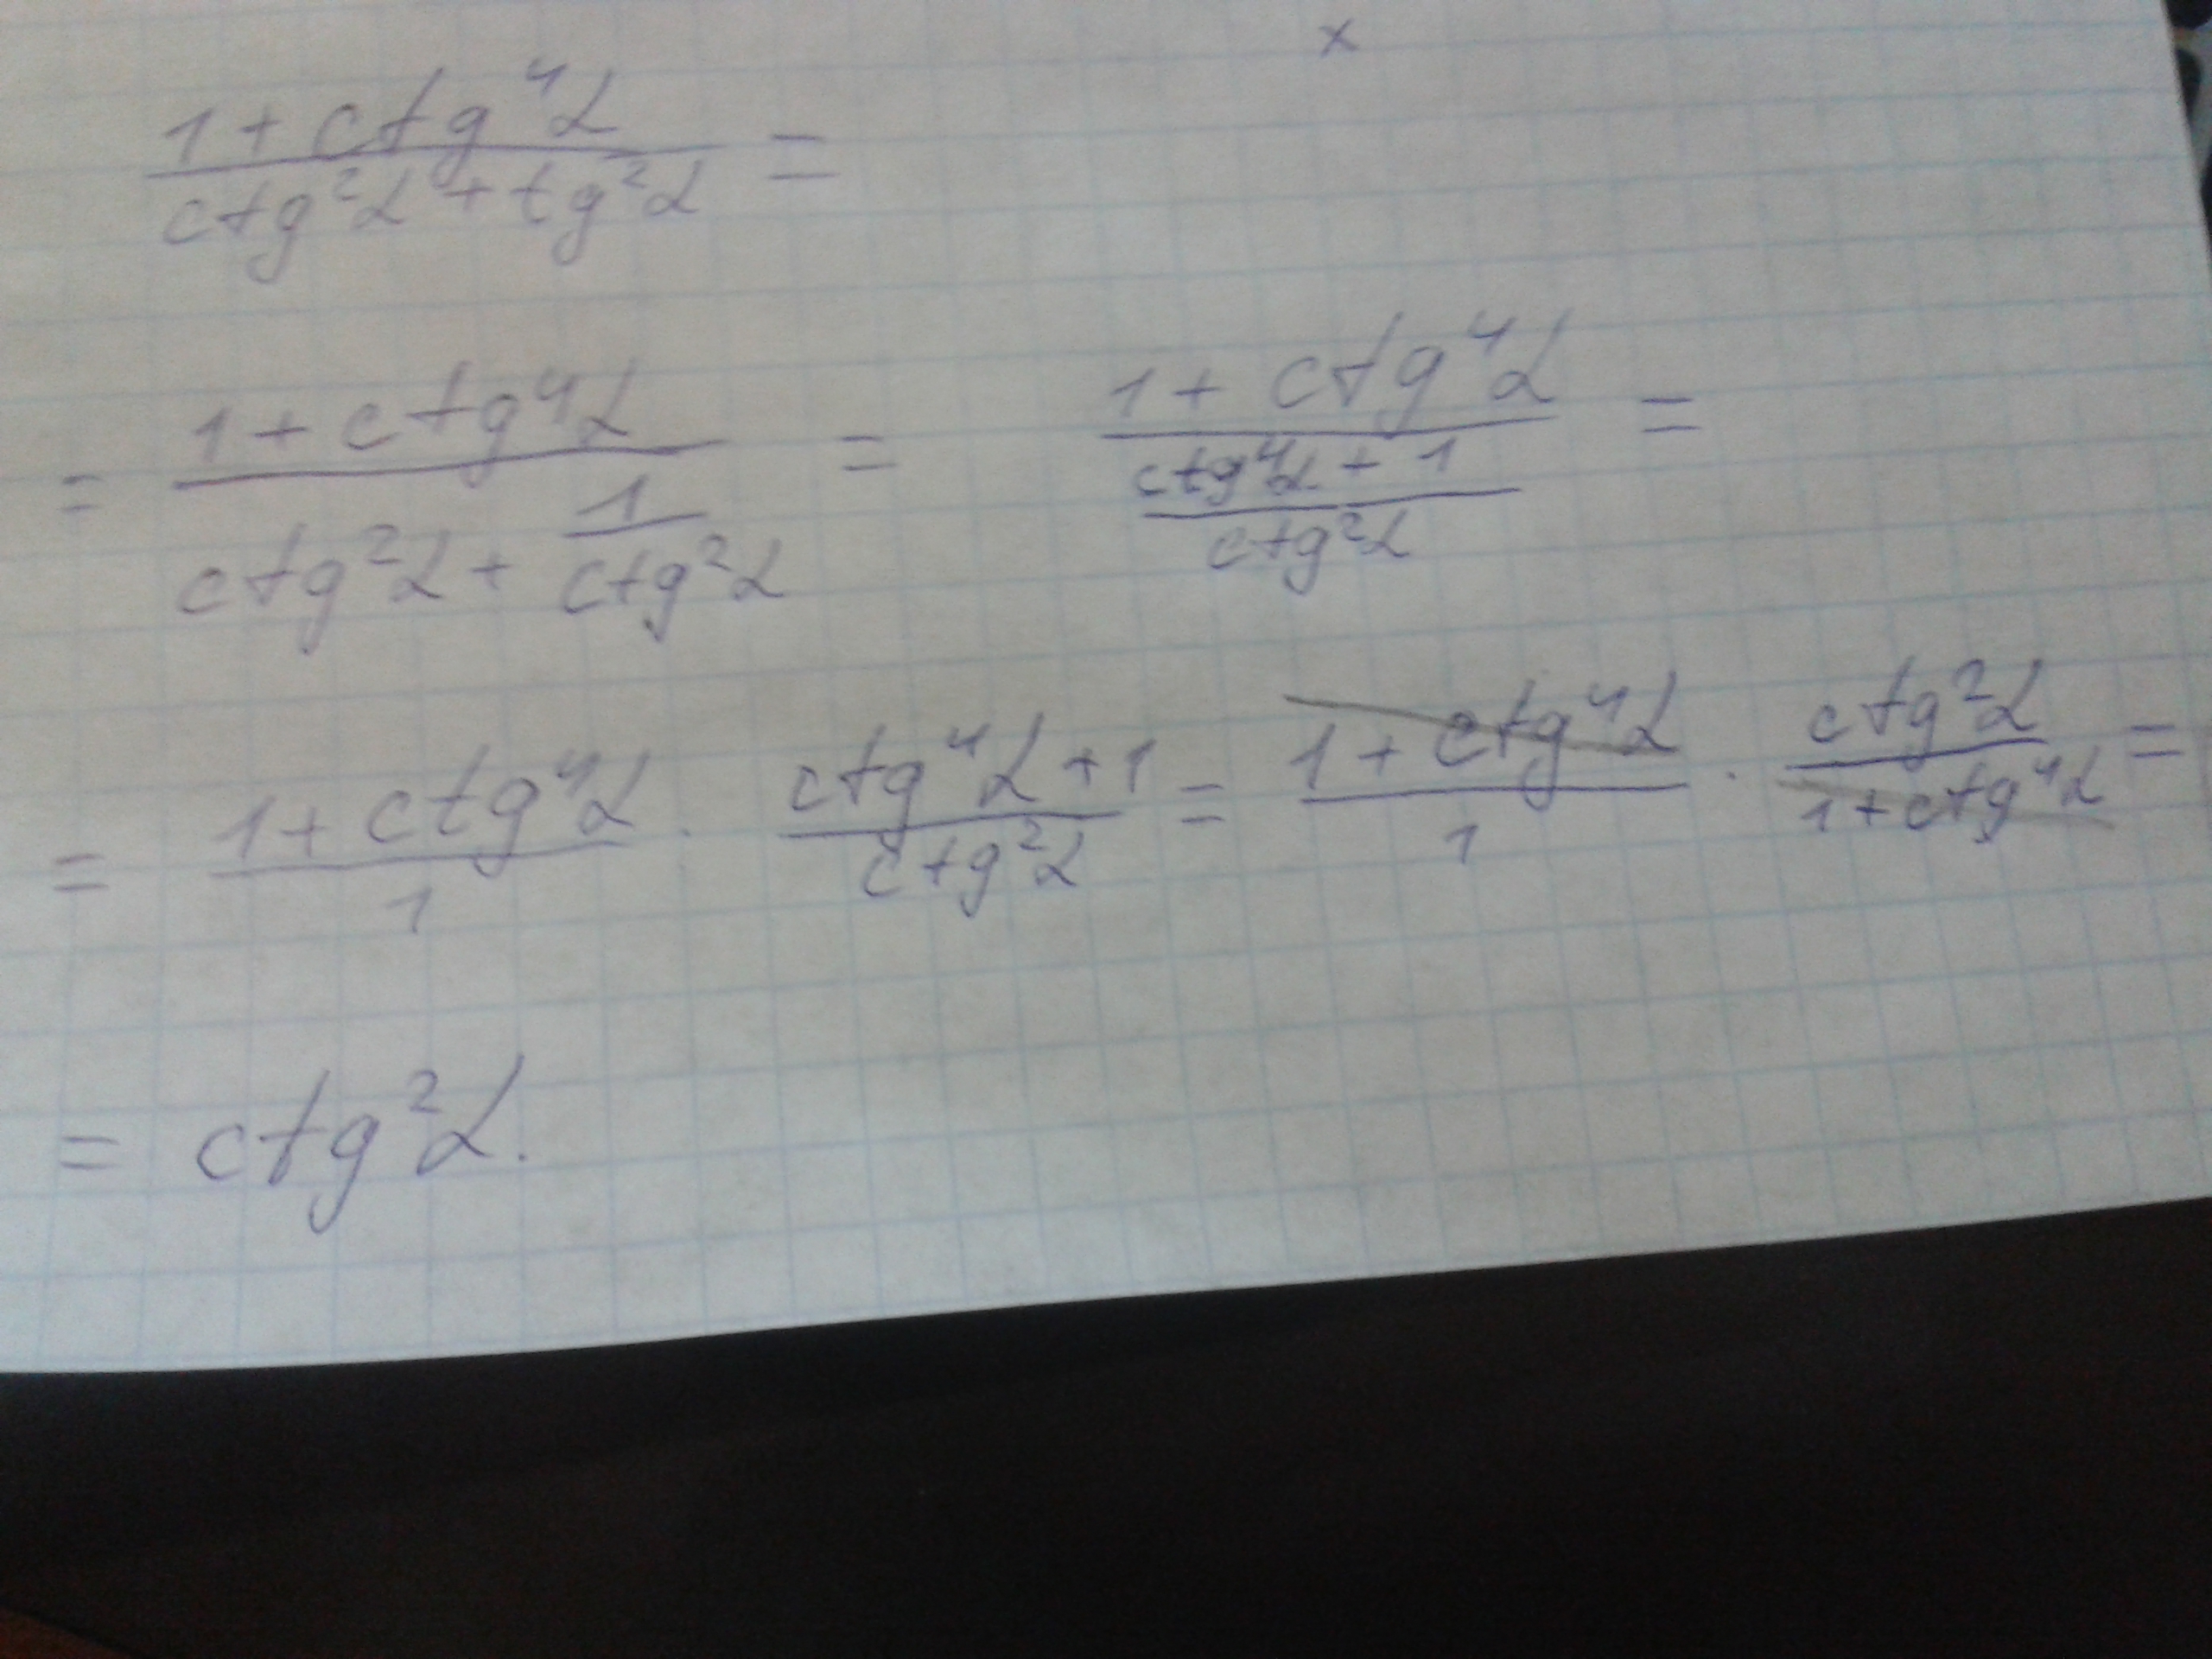 x
(1 + ctg⁴α)/(ctg²α + tg²α) =
= (1 + ctg⁴α)/(ctg²α + 1/ctg²α) = (1 + ctg⁴α)/((ctg⁴α + 1)/ctg²α) =
= (1 + ctg⁴α)/1 · (ctg⁴α + 1)/ctg²α = (1 + ctg⁴α)/1 · ctg²α/(1 + ctg⁴α) =
= ctg²α.